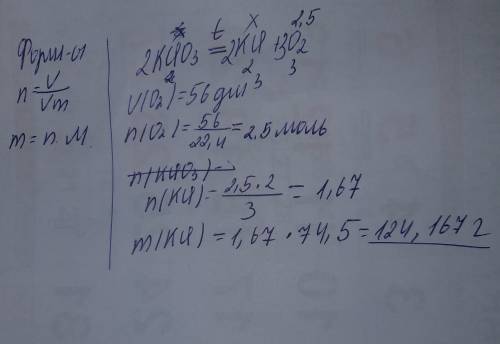 Форми-ли
n=V/Vm
m=n.M.
x 2,5
2KClO3 t= 2KCl+3O2
2 2 3
V(O2)=56дм3
n(O2)=56/22,4=2,5моль
n(KClO3)=
n(KCl)=2,5.2/3=1,67
m(KCl)=1,67.74,5=124,167г